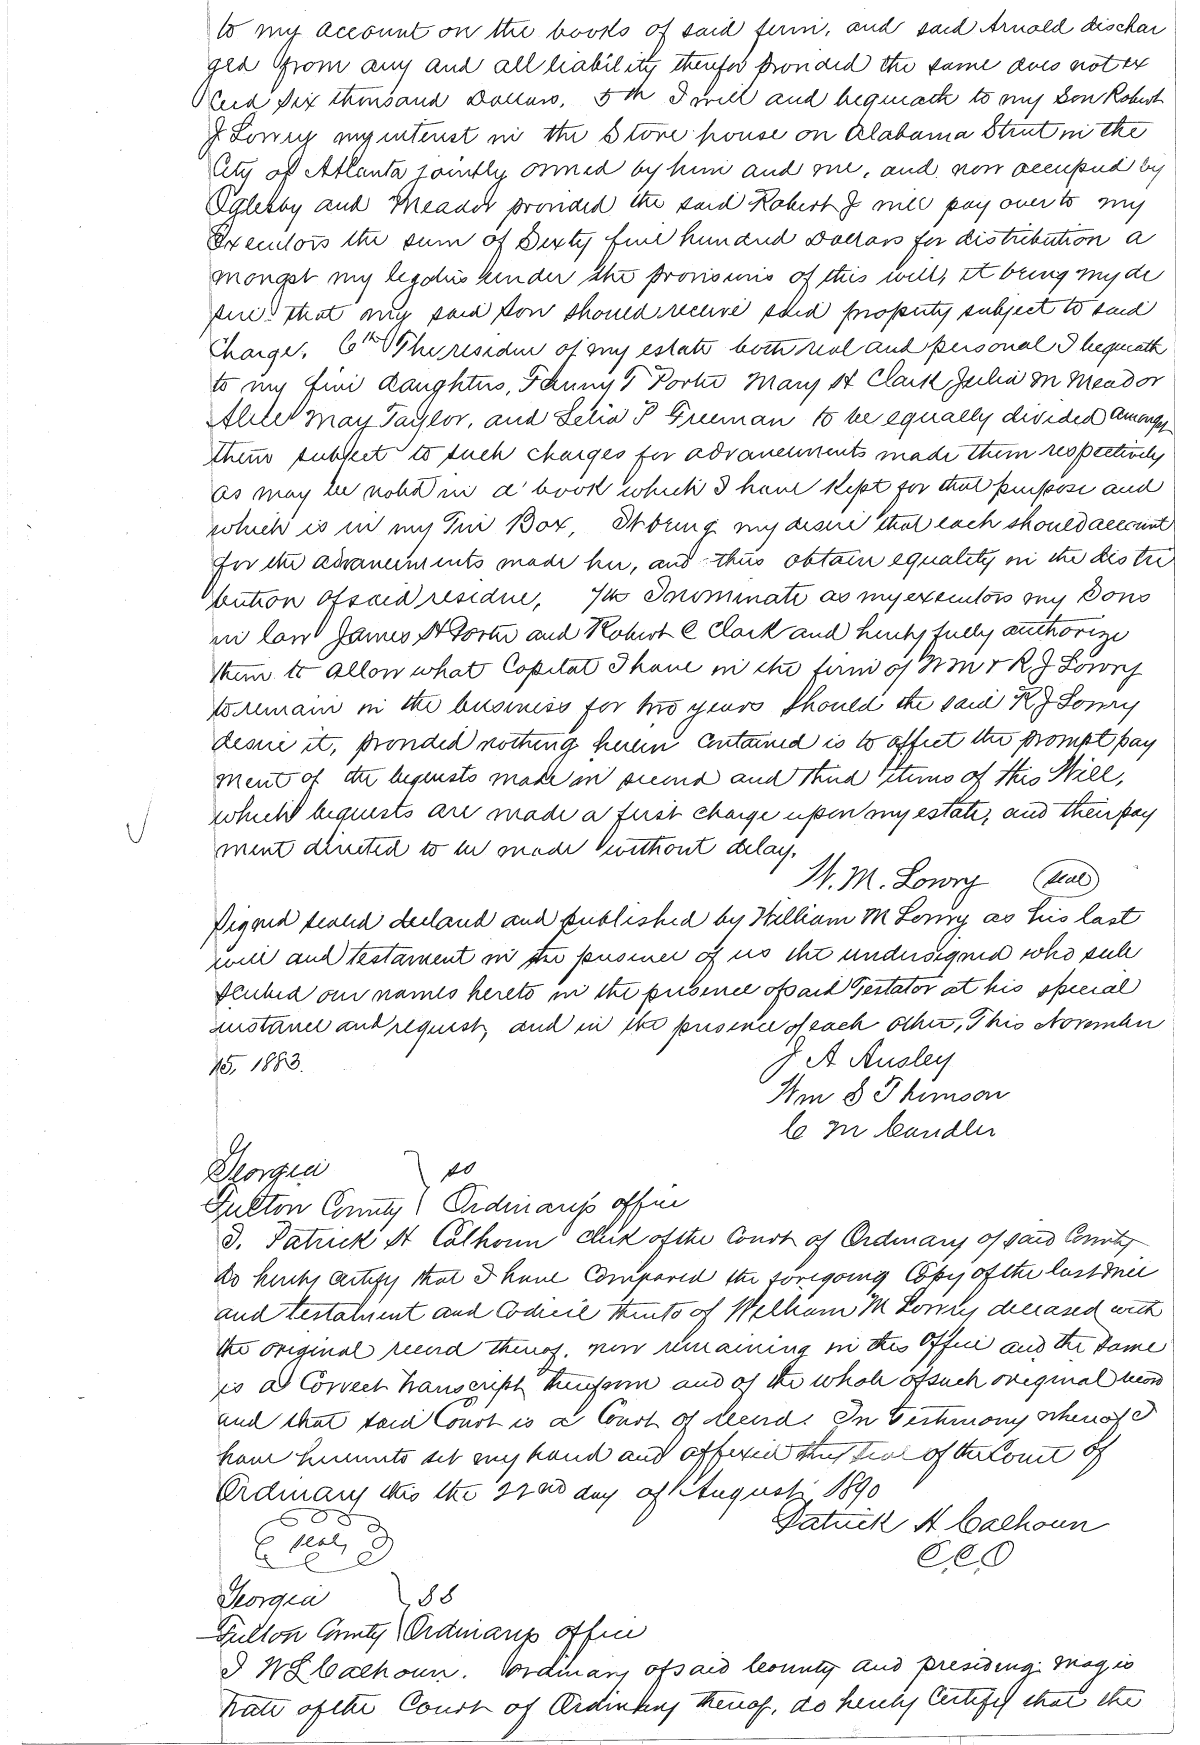 to my account on the books of said firm, and said Arnold dischar
ged from any and all liability therefor provided the same does not ex
ceed Six thousand Dollars. 5th I will and bequeath to my Son Robert
J Lowry my interest in the Store house on Alabama Street in the
City of Atlanta jointly owned by him and me, and now occupied by
Oglesby and Meador provided the said Robert J will pay over to my
Executors the sum of Sixty five hundred Dollars for distribution a
mongst my legatees under the provisions of this will, it being my de
sire that my said Son should receive said property subject to said
Charge. 6th The residue of my estate both real and personal I bequeath
to my five daughters, Fanny T Porter Mary H Clark Julia M Meador
Alice May Taylor, and Lelia P Freeman to be equally divided amongst
them subject to such charges for advancements made them respectively
as may be noted in a book which I have kept for that purpose and
which is in my Tin Box, It being my desire that each should account
for the advancements made her, and thus obtain equality in the distri
bution of said residue, 7th I nominate as my executors my Sons
in law James H Porter and Robert C Clark and hereby fully authorize
them to allow what Capital I have in the firm of W M & R J Lowry
to remain in the business for two years should the said R J Lowry
desire it, provided nothing herein contained is to affect the prompt pay
ment of the bequests made in second and third items of this Will,
which bequests are made a first charge upon my estate, and their pay
ment directed to be made without delay.
W. M. Lowry (seal)
Signed sealed declared and published by William M Lowry as his last
will and testament in the presence of us the undersigned who sub
scribed our names hereto in the presence of said Testator at his special
instance and request, and in the presence of each other, This November
15, 1883.
J A Ansley
Wm S Thomson
C M Candler
Georgia } ss
Fulton County } Ordinary's office
I. Patrick H Calhoun clerk of the Court of Ordinary of said County
do hereby certify that I have compared the foregoing Copy of the last will
and testament and Codicil thereto of William M Lowry deceased with
the original record thereof, now remaining in this Office and the same
is a Correct transcript therefrom and of the whole of such original record
and that said Court is a Court of record. In Testimony whereof I
have hereunto set my hand and affixed the seal of the Court of
Ordinary this the 22nd day of August, 1890
Patrick H Calhoun
(seal) C.C.O
Georgia } SS
Fulton County } Ordinarys office
I W L Calhoun. Ordinary of said County and presiding magis
trate of the Court of Ordinary thereof, do hereby Certify that the